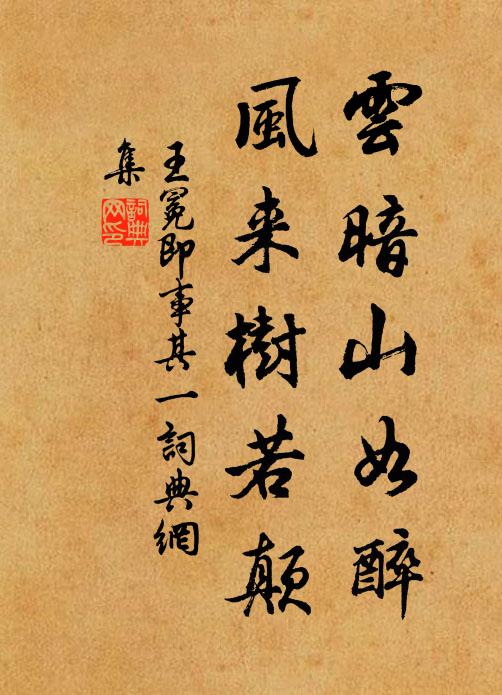 雲暗山如醉
風来樹若顛
王冕即事其一詞典網
集
詞典網印